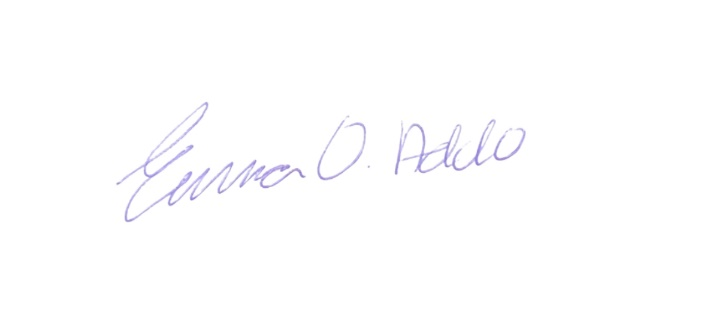 Emma O. Addo